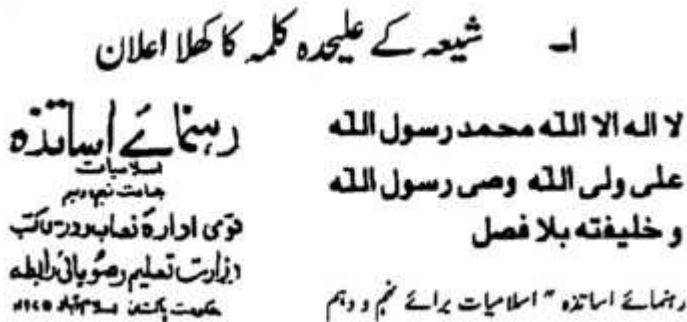 ۱۔ شیعہ کے علیحدہ کلمہ کا کھلا اعلان
لا اله الا الله محمد رسول الله
علی ولی الله وصی رسول الله
و خلیفته بلا فصل
رہنمائے اساتذہ " اسلامیات برائے نہم و دہم
رہنمائے اساتذہ
اسلامیات
جماعت نہم، دہم
قومی ادارۂ نصاب و درسی کتب
وزارت تعلیم و صوبائی رابطہ
حکومت پاکستان اسلام آباد